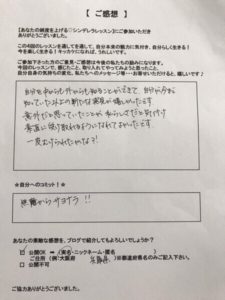 【ご感想】
【あなたの純度を上げる♡シンデレラレッスン】にご参加いただき
ありがとうございました。
この4回のレッスンを通して、あなた本来の魅力に気付き、自分らしく生きる！
今を楽しく生きる！キッカケになれば、うれしいです。
ご参加下さった方のご意見・ご感想は今後の私たちの励みになります。
今回のレッスンで、感じたこと、取り入れてやってみようと思ったこと、
自分自身の気持ちの変化、私たちへのメッセージ等…お寄せいただけると、嬉しいです♪
自分を中からも外からも知ることができて、自分が今まで
知っていた以上の新たな発見が嬉しかったです
意外だと思っていたことが、私らしさだと気付け
素直に受け取れるようになれてよかったです
一皮むけられたかな？！
★自分へのコミット！★
サヨナラ！！
あなたの素敵な感想を、ブログで紹介してもよろしいでしょうか？
□ 公開OK → (実名・ニックネーム・匿名)
ご住所 (例:大阪府 兵庫県 )※都道府県名のみご記入下さい。
□ 公開不可
ご協力ありがとうございました。